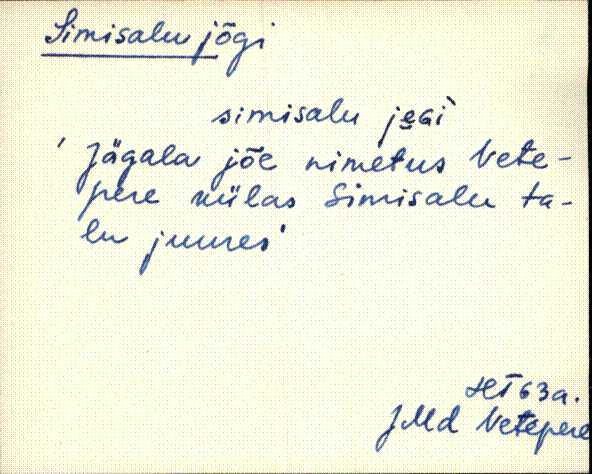 Simisalu jõgi
simisalu je̮Gì
'Jägala jõe nimetus Vete-
pere külas Simisalu ta-
lu juures'
HT 63a.
JMd Vetepere